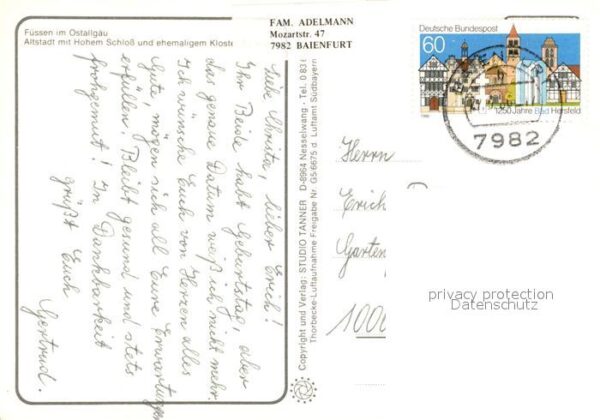 Füssen im Ostallgäu
Altstadt mit Hohem Schloß und ehemaligem Kloste
FAM. ADELMANN
Mozartstr. 47
7982 BAIENFURT
Liebe Christa, lieber Erich!
Ihr Beide habt Geburtstag, aber
das genaue Datum weiß ich nicht mehr.
Ich wünsche Euch von Herzen alles
Gute, mögen sich all Eure Erwartungen
erfüllen. Bleibt gesund und stets
frohgemut! In Dankbarkeit
grüßt Euch
Gertrud.
Copyright und Verlag: STUDIO TANNER D-8964 Nesselwang - Tel. 0 83 6
Thorbecke-Luftaufnahme Freigabe Nr. G5/6675 d Luftamt Südbayern
Deutsche Bundespost
60
1250 Jahre Bad Hersfeld
1986
7982
Herrn
Erich
Garten
1000
privacy protection
Datenschutz